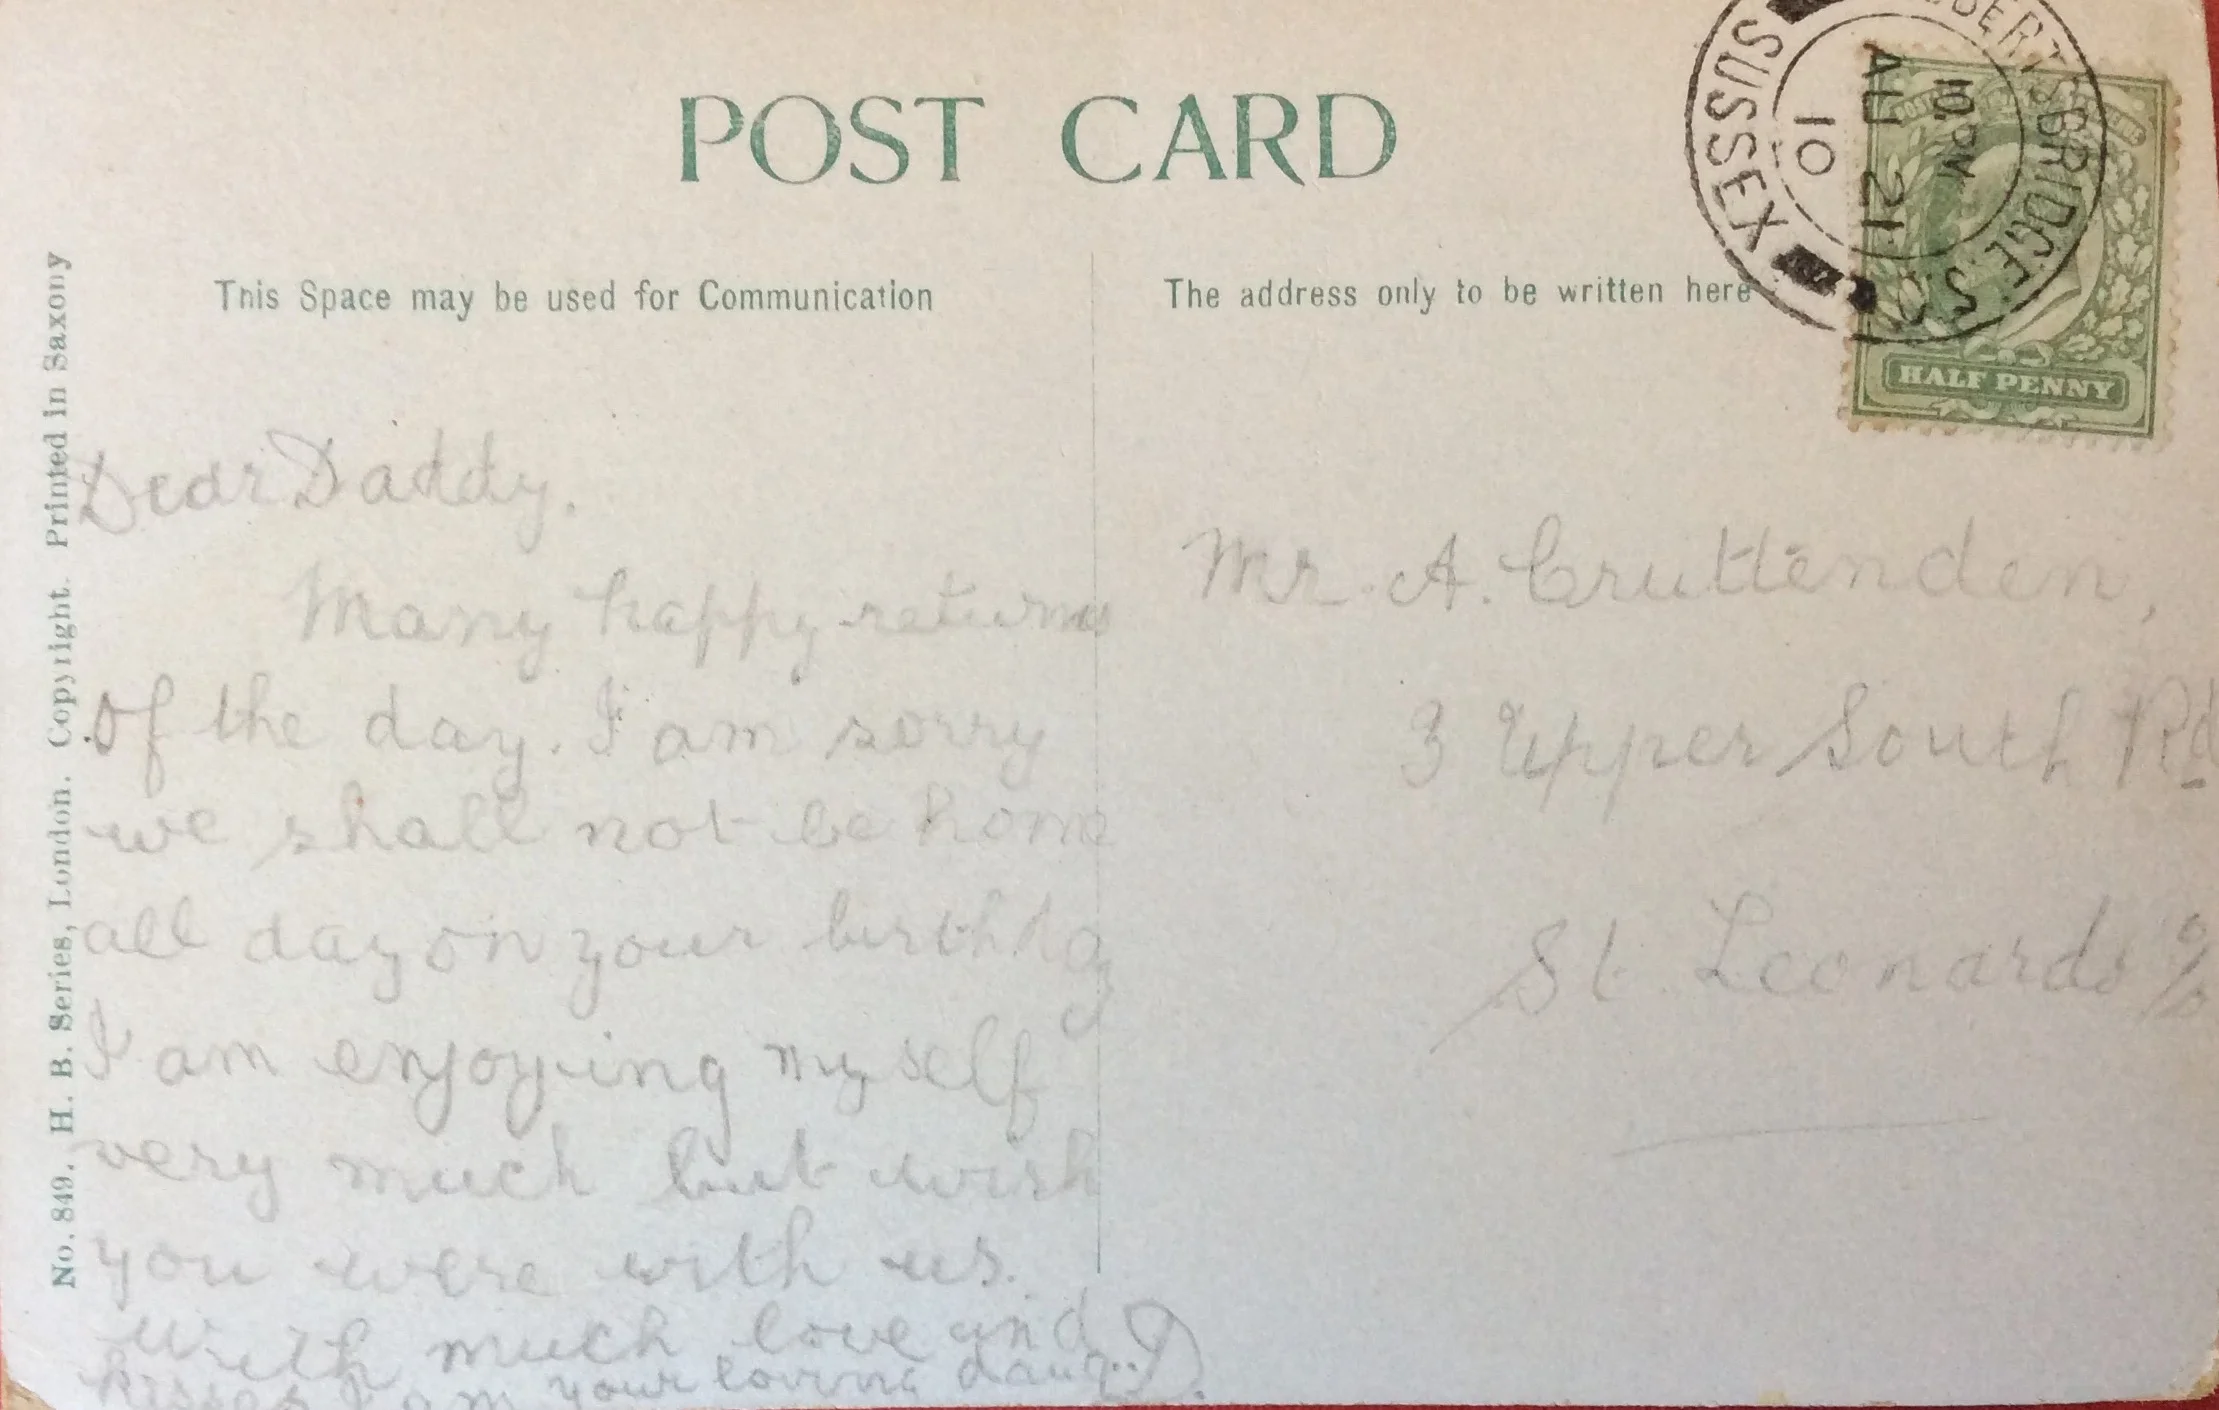 POST CARD
This Space may be used for Communication
The address only to be written here
No. 849. H. B. Series, London. Copyright. Printed in Saxony
SUSSEX
BERTSBRIDGE. S.O
10. PM
AU 21
10
HALF PENNY
Dear Daddy.
Many happy returns
of the day. I am sorry
we shall not be home
all day on your birthday
I am enjoying myself
very much but wish
you were with us.
With much love and
kisses I am your loving daug.. D.
Mr. A. Cruttenden,
3 Upper South Rd
St. Leonards o/s